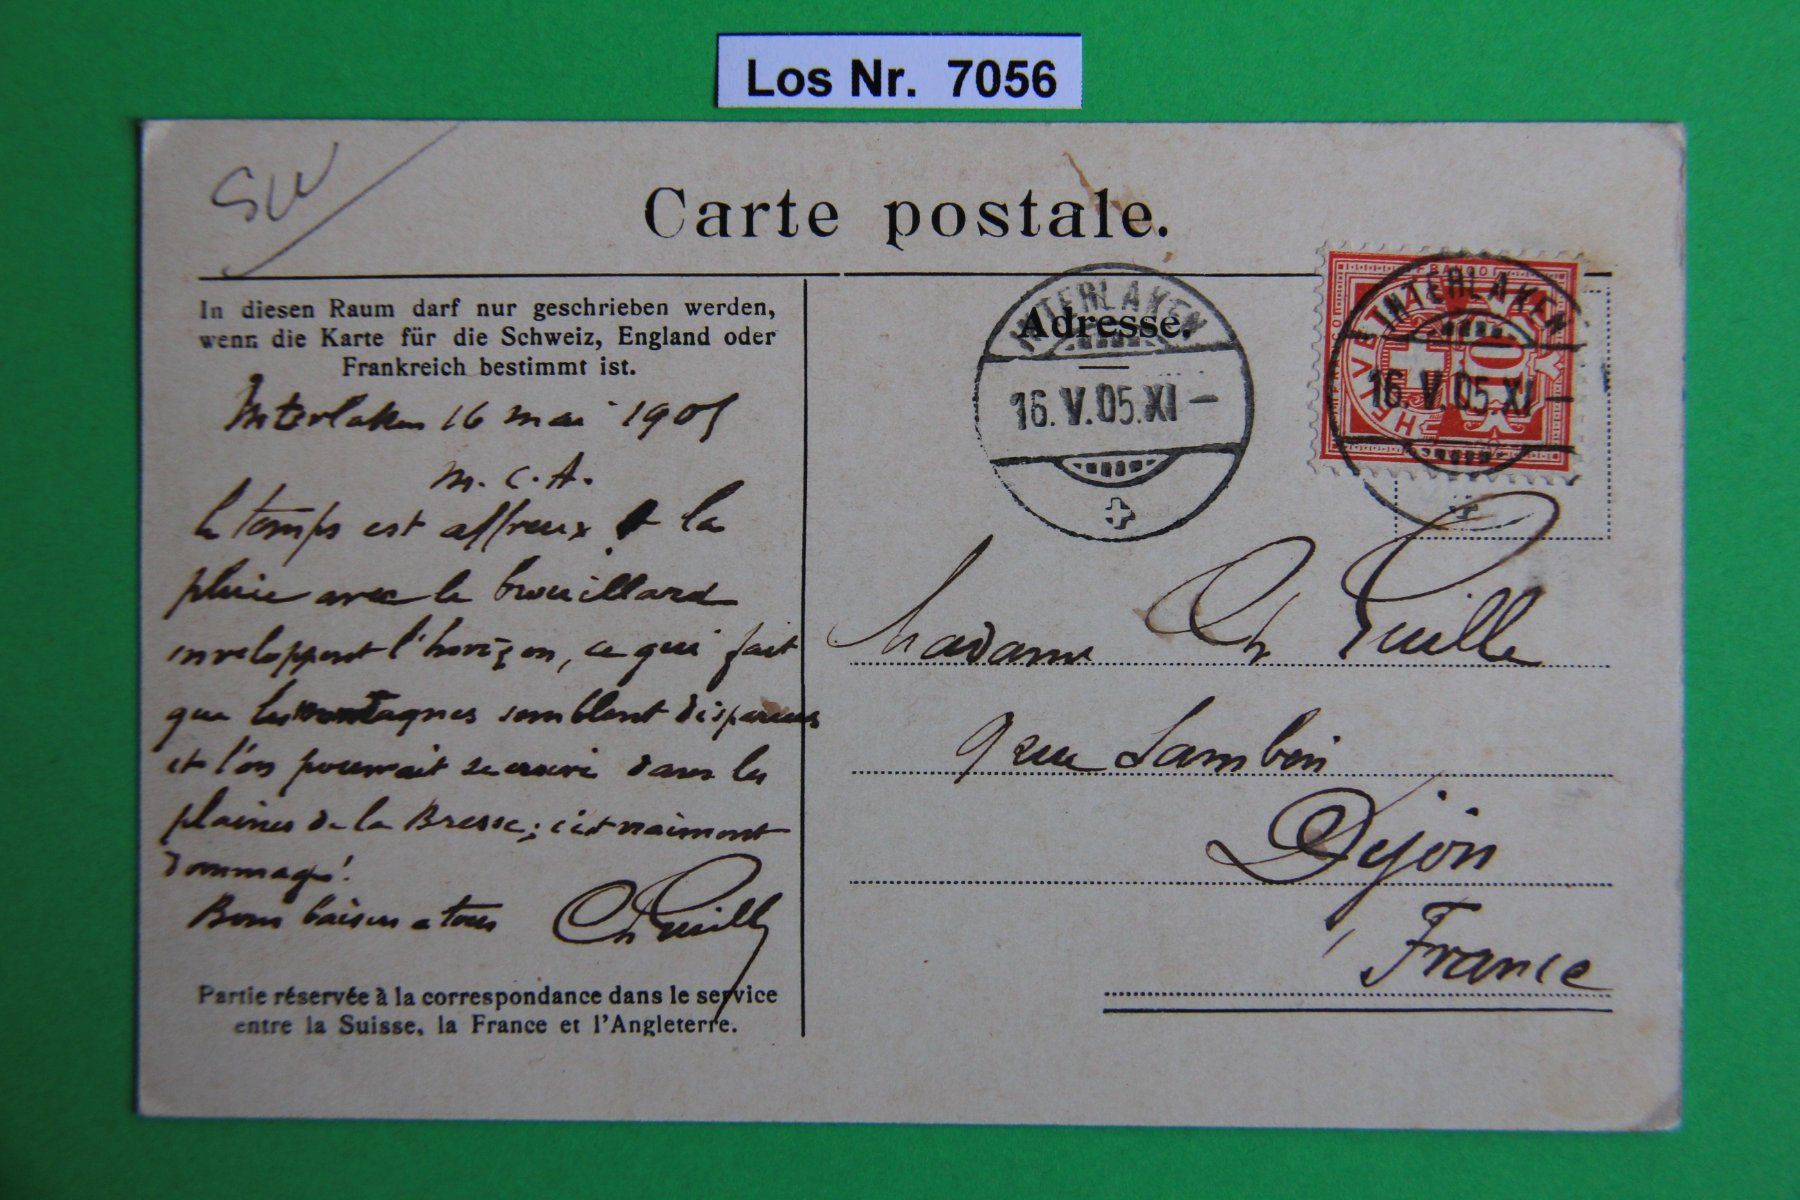 Los Nr. 7056
SW
Carte postale.
In diesen Raum darf nur geschrieben werden,
wenn die Karte für die Schweiz, England oder
Frankreich bestimmt ist.
Interlaken 16 mai 1905
m. c. A.
le temps est affreux, la
pluie avec le brouillard
enveloppent l'horizon, ce qui fait
que les montagnes semblent disparues
et l'on pourrait se croire dans les
plaines de la Bresse; c'est vraiment
dommage!
Bons baisers a tous
Ch
Partie réservée à la correspondance dans le service
entre la Suisse, la France et l'Angleterre.
Adresse.
INTERLAKEN
16.V.05.XI–
FRANCO
HELVETIA
10
INTERLAKEN
16.V.05.XI–
Madame Ch
9 rue
Dijon
France